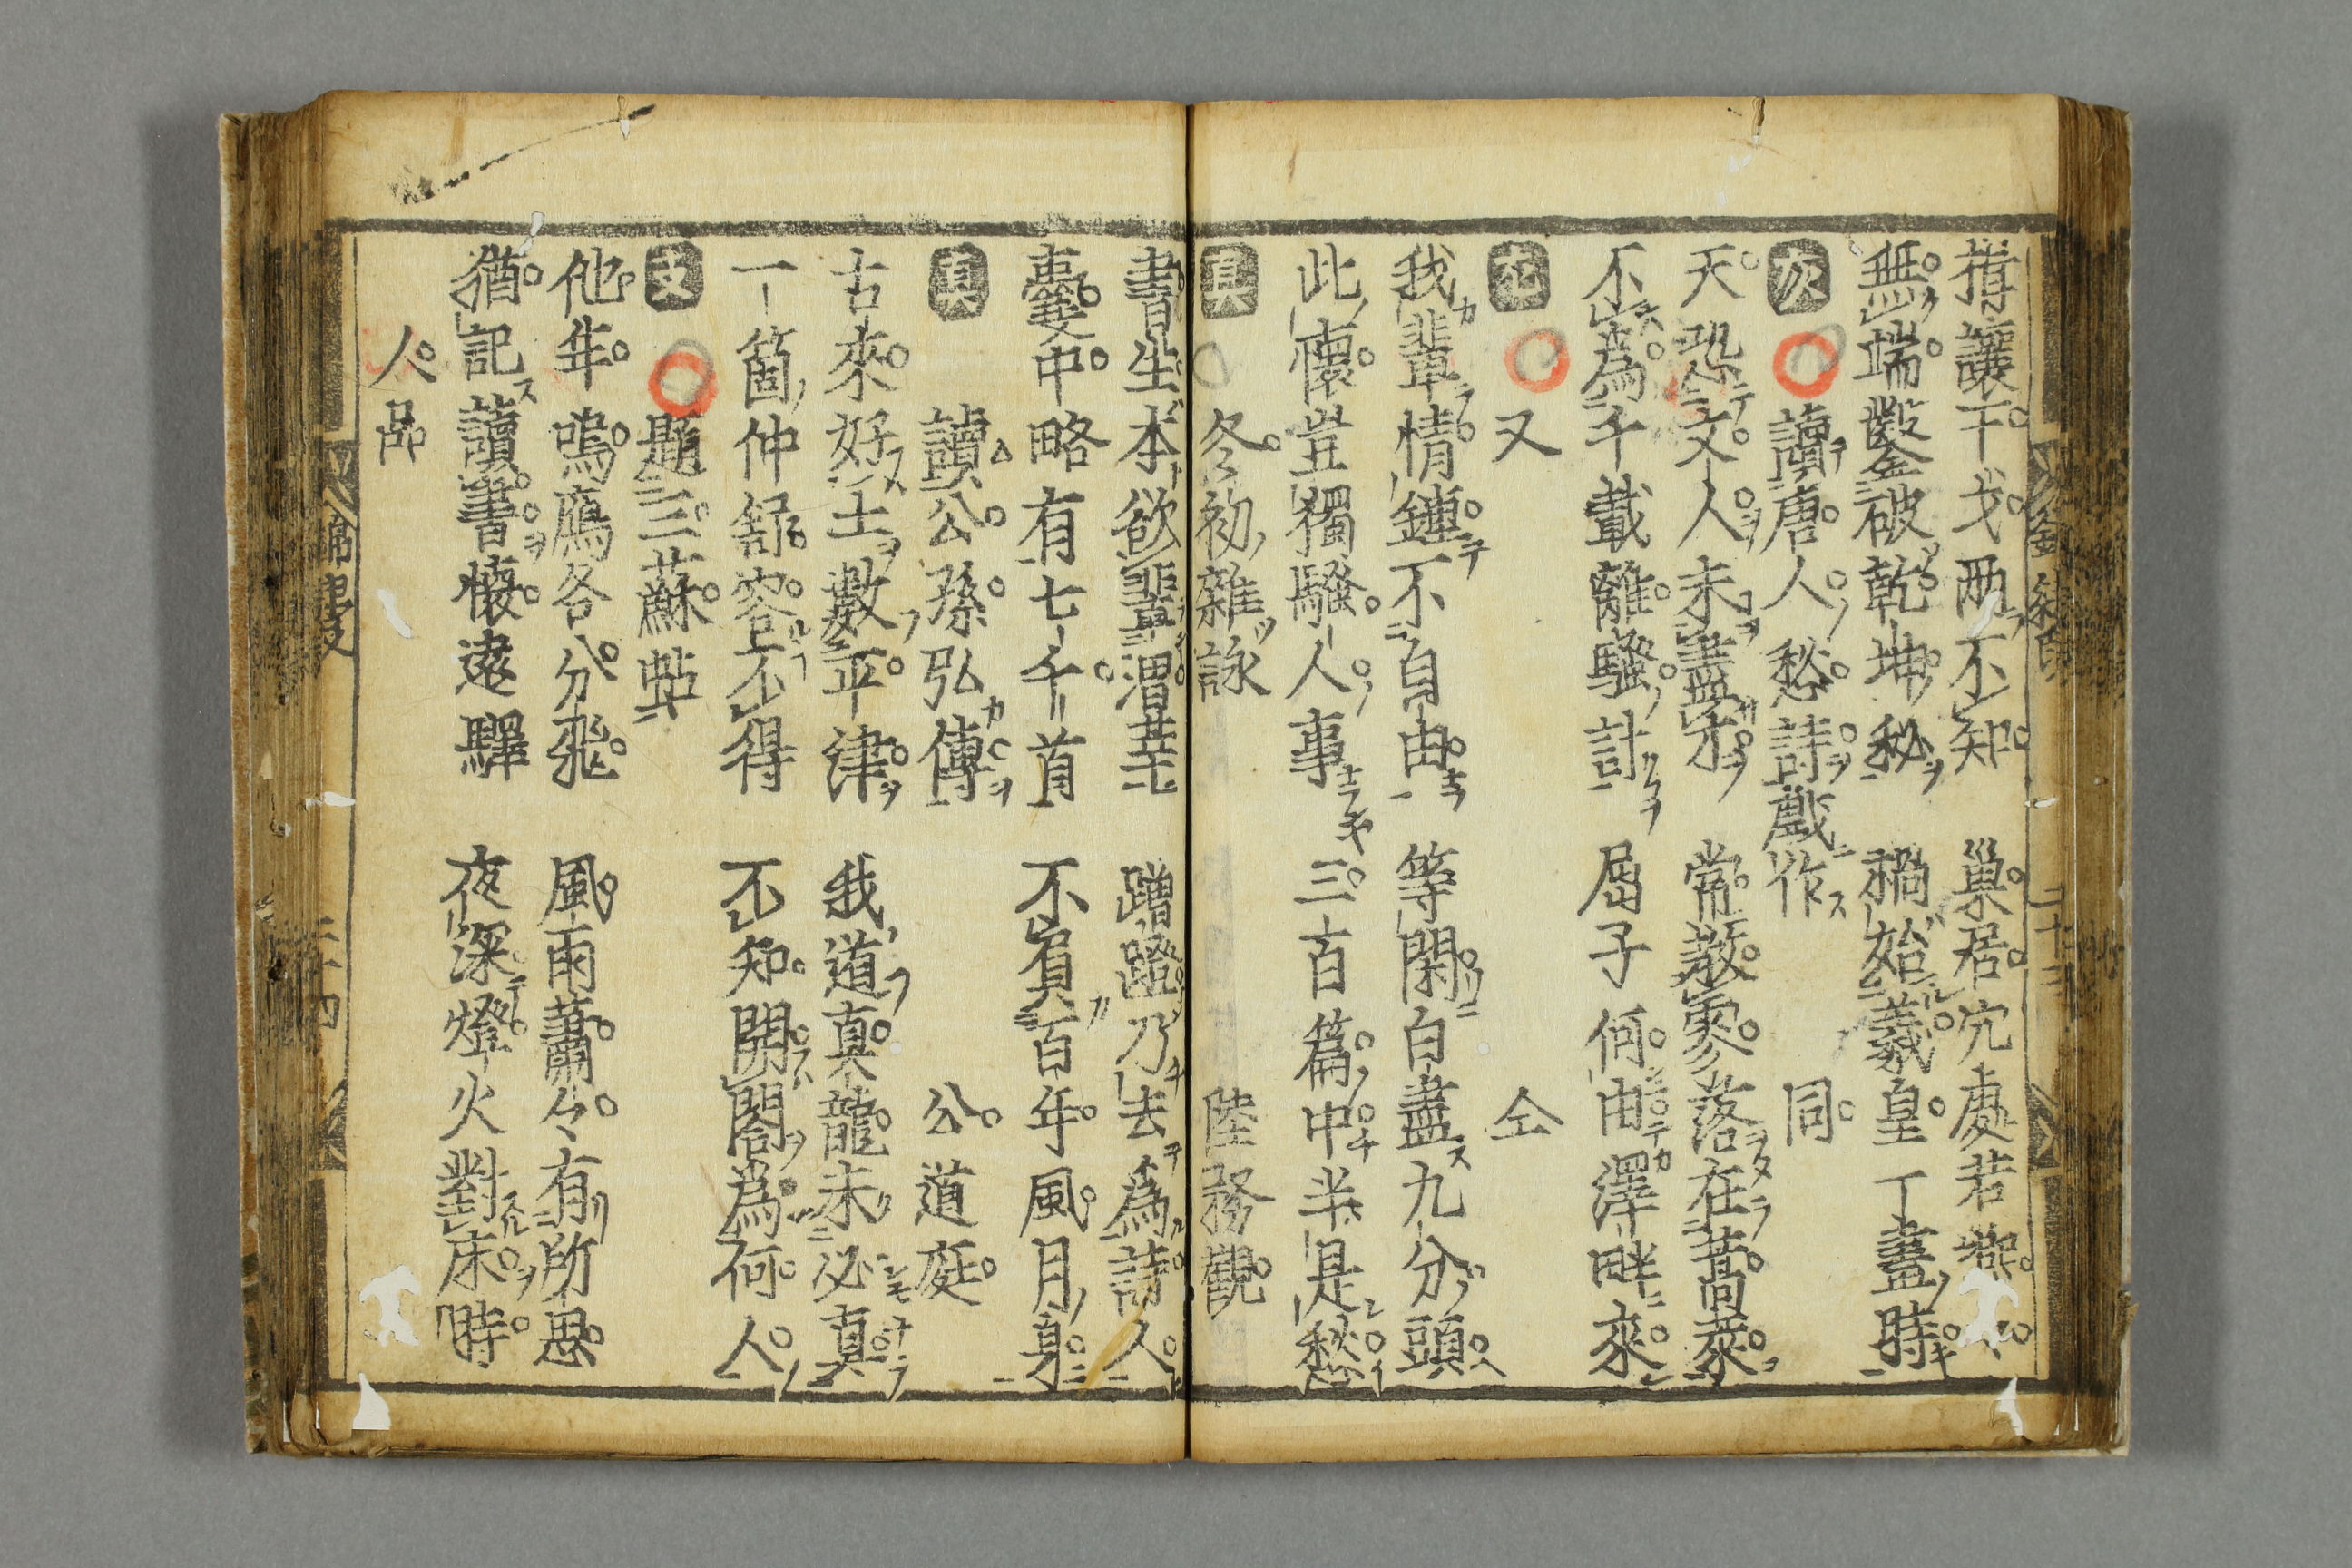 揖讓干戈两不知 巢居穴處若
無端鑿破乾坤秘 禍始羲皇一畫時
次 讀唐人愁詩戯作 同
天恐文人未盡才 常教零落在蒿萊
不為千載離騷計 屈子何由澤畔來
又 仝
我輩情鍾不自由 等閑白盡九分頭
此懷豈獨騷人事 三百篇中半是愁
真 冬初雜詠 陸務觀
書生本欲輩渭莘 蹭蹬乃去為詩人
囊中略有七千首 不負百年風月身
真 讀公孫弘傳 公道庭
古來好士數平津 我道真龍未必真
一箇仲舒容不得 不知開閣為何人
支 題三蘇帖
他年嗚鴈各分飛 風雨蕭々有所思
猶記讀書懷遠驛 夜深燈火對床時
人品